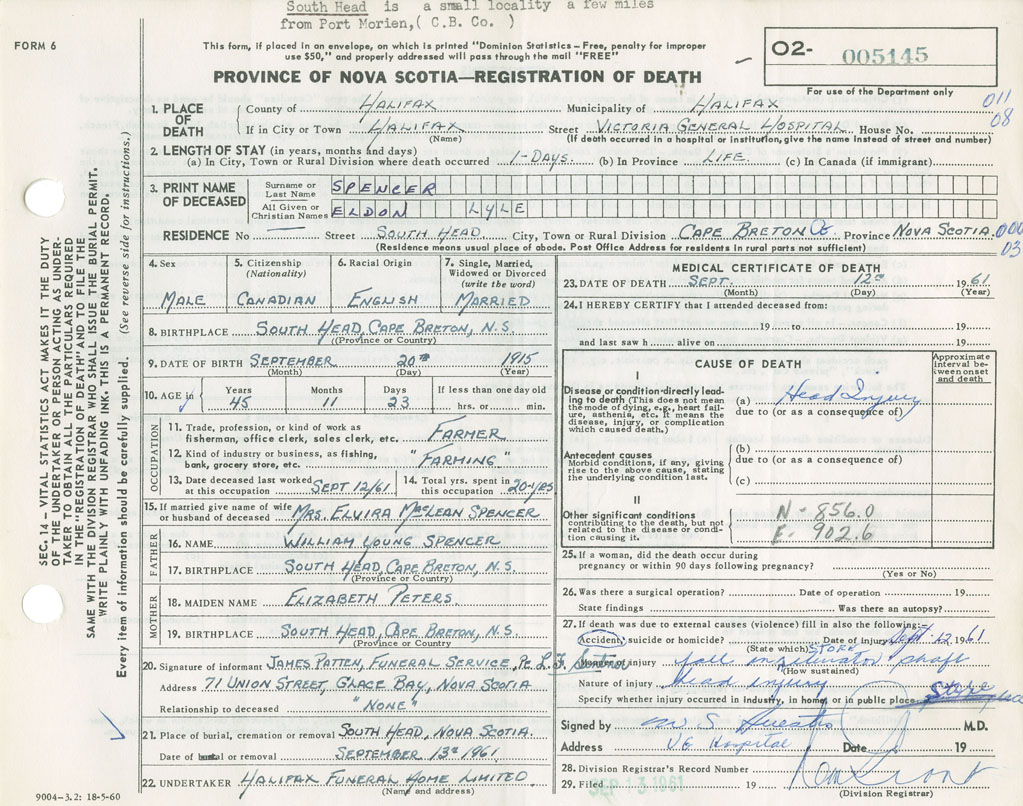 South Head is a small locality a few miles
from Port Morien,( C.B. Co. )
FORM 6
This form, if placed in an envelope, on which is printed "Dominion Statistics – Free, penalty for improper
use $50," and properly addressed will pass through the mail "FREE"
O2- 005145
PROVINCE OF NOVA SCOTIA—REGISTRATION OF DEATH
For use of the Department only
011
08
1. PLACE OF DEATH
County of HALIFAX Municipality of HALIFAX
If in City or Town HALIFAX Street VICTORIA GENERAL HOSPITAL House No.
(Name) (If death occurred in a hospital or institution, give the name instead of street and number)
2. LENGTH OF STAY (in years, months and days)
(a) In City, Town or Rural Division where death occurred 1-DAYS. (b) In Province LIFE. (c) In Canada (if immigrant)
3. PRINT NAME OF DECEASED
Surname or Last Name SPENCER
All Given or Christian Names ELDON LYLE
RESIDENCE No — Street SOUTH HEAD City, Town or Rural Division CAPE BRETON Co. Province NOVA SCOTIA. 000
03
(Residence means usual place of abode. Post Office Address for residents in rural parts not sufficient)
4. Sex MALE
5. Citizenship (Nationality) CANADIAN
6. Racial Origin ENGLISH
7. Single, Married, Widowed or Divorced (write the word) MARRIED
8. BIRTHPLACE SOUTH HEAD, CAPE BRETON, N.S.
(Province or Country)
9. DATE OF BIRTH SEPTEMBER 20TH 1915
(Month) (Day) (Year)
10. AGE in Years 45 Months 11 Days 23 If less than one day old hrs. or min.
OCCUPATION
11. Trade, profession, or kind of work as
fisherman, office clerk, sales clerk, etc. FARMER
12. Kind of industry or business, as fishing,
bank, grocery store, etc. "FARMING"
13. Date deceased last worked at this occupation SEPT 12/61
14. Total yrs. spent in this occupation 20-YRS
15. If married give name of wife
or husband of deceased MRS. ELVIRA MACLEAN SPENCER
FATHER
16. NAME WILLIAM YOUNG SPENCER
17. BIRTHPLACE SOUTH HEAD, CAPE BRETON, N.S.
(Province or Country)
MOTHER
18. MAIDEN NAME ELIZABETH PETERS.
19. BIRTHPLACE SOUTH HEAD, CAPE BRETON, N.S.
(Province or Country)
20. Signature of informant JAMES PATTEN, FUNERAL SERVICE, Pr. L.F.
Address 71 UNION STREET, GLACE BAY, NOVA SCOTIA
Relationship to deceased "NONE"
21. Place of burial, cremation or removal SOUTH HEAD, NOVA SCOTIA.
Date of burial or removal SEPTEMBER 13th 1961
22. UNDERTAKER HALIFAX FUNERAL HOME LIMITED
(Name and address)
9004–3.2: 18-5-60
MEDICAL CERTIFICATE OF DEATH
23. DATE OF DEATH SEPT. 12th 1961
(Month) (Day) (Year)
24. I HEREBY CERTIFY that I attended deceased from:
19 to 19
and last saw h alive on 19
CAUSE OF DEATH
Approximate interval between onset and death
I
Disease or condition directly leading to death (This does not mean the mode of dying, e.g., heart failure, asthenia, etc. It means the disease, injury, or complication which caused death.)
(a) Head Injury
due to (or as a consequence of)
Antecedent causes
Morbid conditions, if any, giving rise to the above cause, stating the underlying condition last.
(b)
due to (or as a consequence of)
(c)
II
Other significant conditions
contributing to the death, but not related to the disease or condition causing it.
N - 856.0
E - 902.6
25. If a woman, did the death occur during
pregnancy or within 90 days following pregnancy?
(Yes or No)
26. Was there a surgical operation? Date of operation 19
State findings Was there an autopsy?
27. If death was due to external causes (violence) fill in also the following:—
Accident, suicide or homicide? Date of injury Sept. 12 1961
(State which) STORE
Manner of injury fall in elevator shaft
(How sustained)
Nature of injury head injury
Specify whether injury occurred in industry, in home, or in public place Store
Signed by M.D.
Address V G Hospital Date 19
28. Division Registrar's Record Number
29. Filed SEP 13 1961 19
(Division Registrar)
SEC. 14 – VITAL STATISTICS ACT MAKES IT THE DUTY
OF THE UNDERTAKER OR PERSON ACTING AS UNDER-
TAKER TO OBTAIN ALL THE PARTICULARS REQUIRED
IN THE "REGISTRATION OF DEATH" AND TO FILE THE
SAME WITH THE DIVISION REGISTRAR WHO SHALL ISSUE THE BURIAL PERMIT.
WRITE PLAINLY WITH UNFADING INK. THIS IS A PERMANENT RECORD.
Every item of information should be carefully supplied. (See reverse side for instructions.)